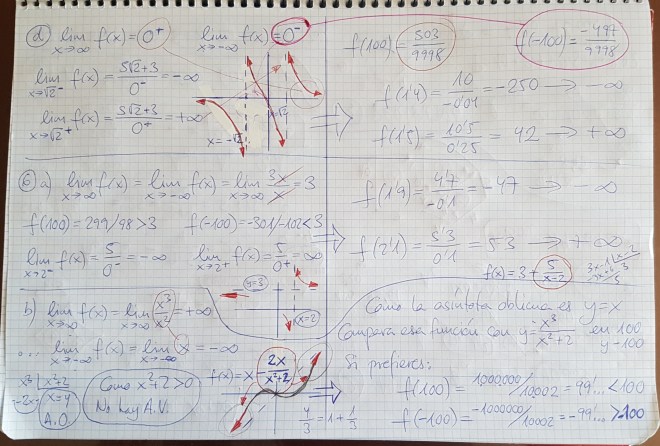 d) lim x→∞ f(x) = 0⁺ lim x→-∞ f(x) = 0⁻
lim x→√2⁻ f(x) = 5√2+3 / 0⁻ = -∞
lim x→√2⁺ f(x) = 5√2+3 / 0⁺ = +∞
x=-√2 x=√2
f(100) = 503/9998 f(-100) = -497/9998
f(1'4) = 10/-0'04 = -250 → -∞
f(1'5) = 10'5/0'25 = 42 → +∞
6 a) lim x→∞ f(x) = lim x→-∞ f(x) = lim x→∞ 3x/x = 3
f(100) = 299/98 > 3 f(-100) = -301/-102 < 3
lim x→2⁻ f(x) = 5/0⁻ = -∞ lim x→2⁺ f(x) = 5/0⁺ = ∞
y=3 x=2
f(1'9) = 4'7/-0'1 = -47 → -∞
f(2'1) = 5'3/0'1 = 53 → +∞
f(x) = 3 + 5/x-2
b) lim x→∞ f(x) = lim x→∞ x³/x² = +∞
... lim x→-∞ f(x) = lim x→-∞ x = -∞
x³ x²+2
-2x x=y
A.O
Como x²+2>0
No hay A.V.
f(x) = x - 2x/x²+2
4/3 = 1 + 1/3
Como la asíntota oblicua es y=x
Compara esa función con y = x³/x²+2 en 100
y -100
Si prefieres:
f(100) = 1000000/10002 = 99'... < 100
f(-100) = -1000000/10002 = -99'... > -100